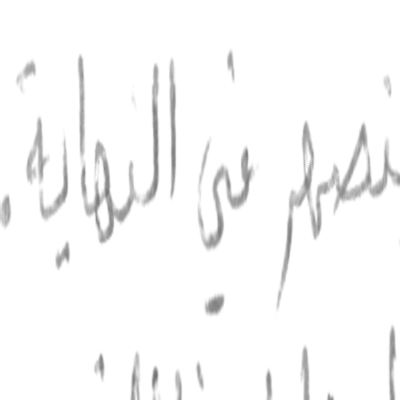 نصهر في النهاية.